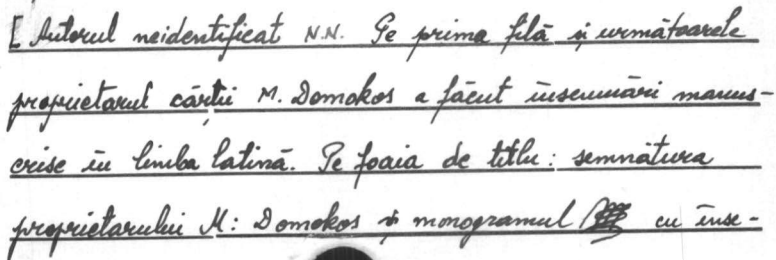 [ Autorul neidentificat N.N. Pe prima filă și următoarele
proprietarul cărții M. Domokos a făcut însemnări manus-
crise în limba latină. Pe foaia de titlu: semnătura
proprietarului M: Domokos și monogramul cu înse-